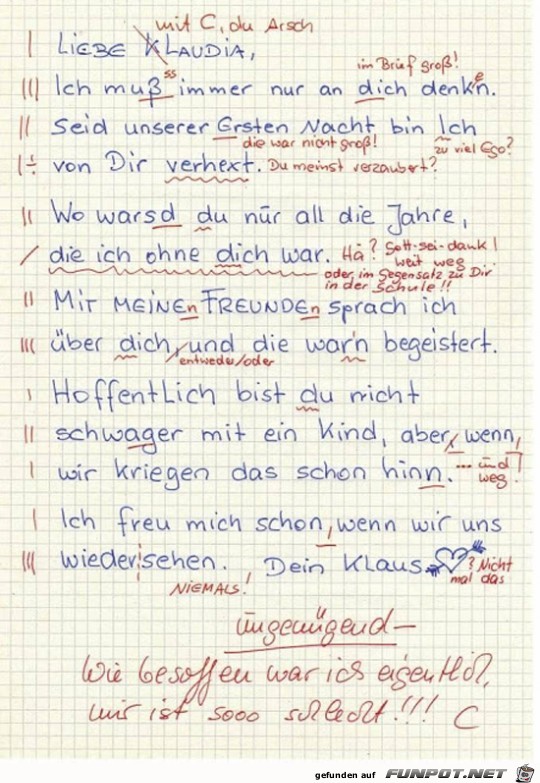 mit C, du Arsch
LIEBE KLAUDIA,
im Brief groß!
ss e
Ich muß immer nur an dich denkn.
Seid unserer Ersten Nacht bin Ich
die war nicht groß! zu viel Ego?
von Dir verhext. Du meinst verzaubert?
Wo warsd du nür all die Jahre,
die ich ohne dich war. Hä? Gott-sei-dank! weit weg
oder im Gegensatz zu Dir
in der Schule!!
MIT MEINEn FREUNDEn sprach ich
über dich, und die war'n begeistert.
entweder/oder
Hoffentlich bist du nicht
schwager mit ein Kind, aber, wenn,
wir kriegen das schon hinn. ... und weg!
Ich freu mich schon, wenn wir uns
wiedersehen. Dein KLAUS ? Nicht mal das
NIEMALS!
ungenügend-
Wie besoffen war ich eigentlich,
mir ist sooo schlecht!!! C
gefunden auf FUNPOT.NET